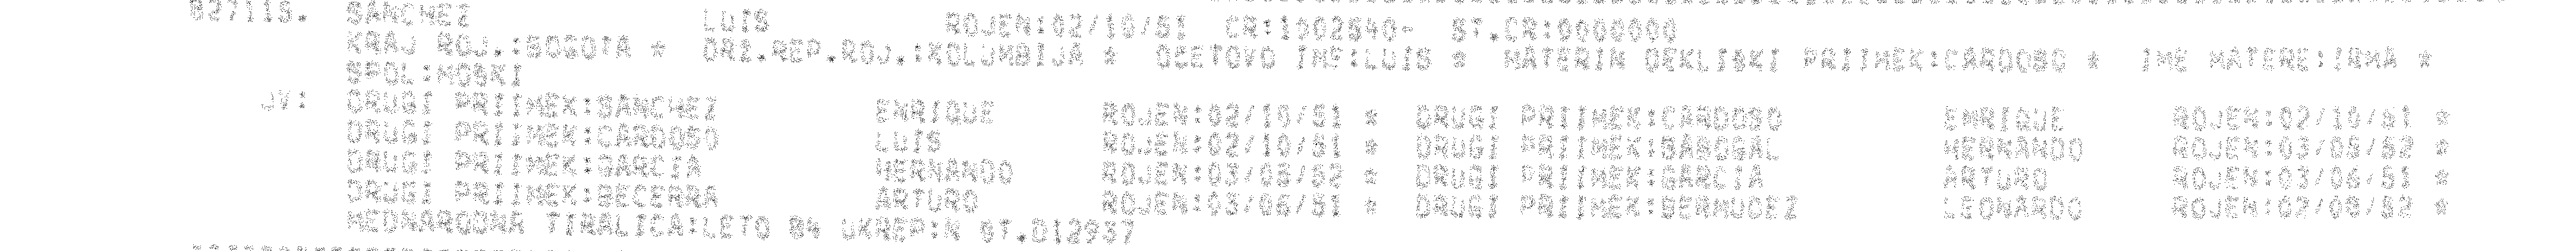 027115. SANCHEZ LUIS ROJEN:02/10/51 CR:1002540- ST.CR:0000000
KRAJ ROJ.:BOGOTA * DRI.REP.ROJ.:KOLUMBIJA * OCETOVO IME:LUIS * MATERIN DEKLISKI PRIIMEK:CARDOSO * IME MATERE:IRMA *
SPOL:MOSKI
JV: DRUGI PRIIMEK:SANCHEZ ENRIQUE ROJEN:02/10/51 * DRUGI PRIIMEK:CARDOSO ENRIQUE ROJEN:02/10/51 *
DRUGI PRIIMEK:CARDOSO LUIS ROJEN:02/10/51 * DRUGI PRIIMEK:SABOGAL HERNANDO ROJEN:03/08/52 *
DRUGI PRIIMEK:GARCIA HERNANDO ROJEN:03/08/52 * DRUGI PRIIMEK:GARCIA ARTURO ROJEN:03/06/51 *
DRUGI PRIIMEK:BECERRA ARTURO ROJEN:03/06/51 * DRUGI PRIIMEK:BERMUDEZ LEONARDO ROJEN:02/08/52 *
MEDNARODNA TIRALICA:LETO 84 UKREP:N ST.D12937